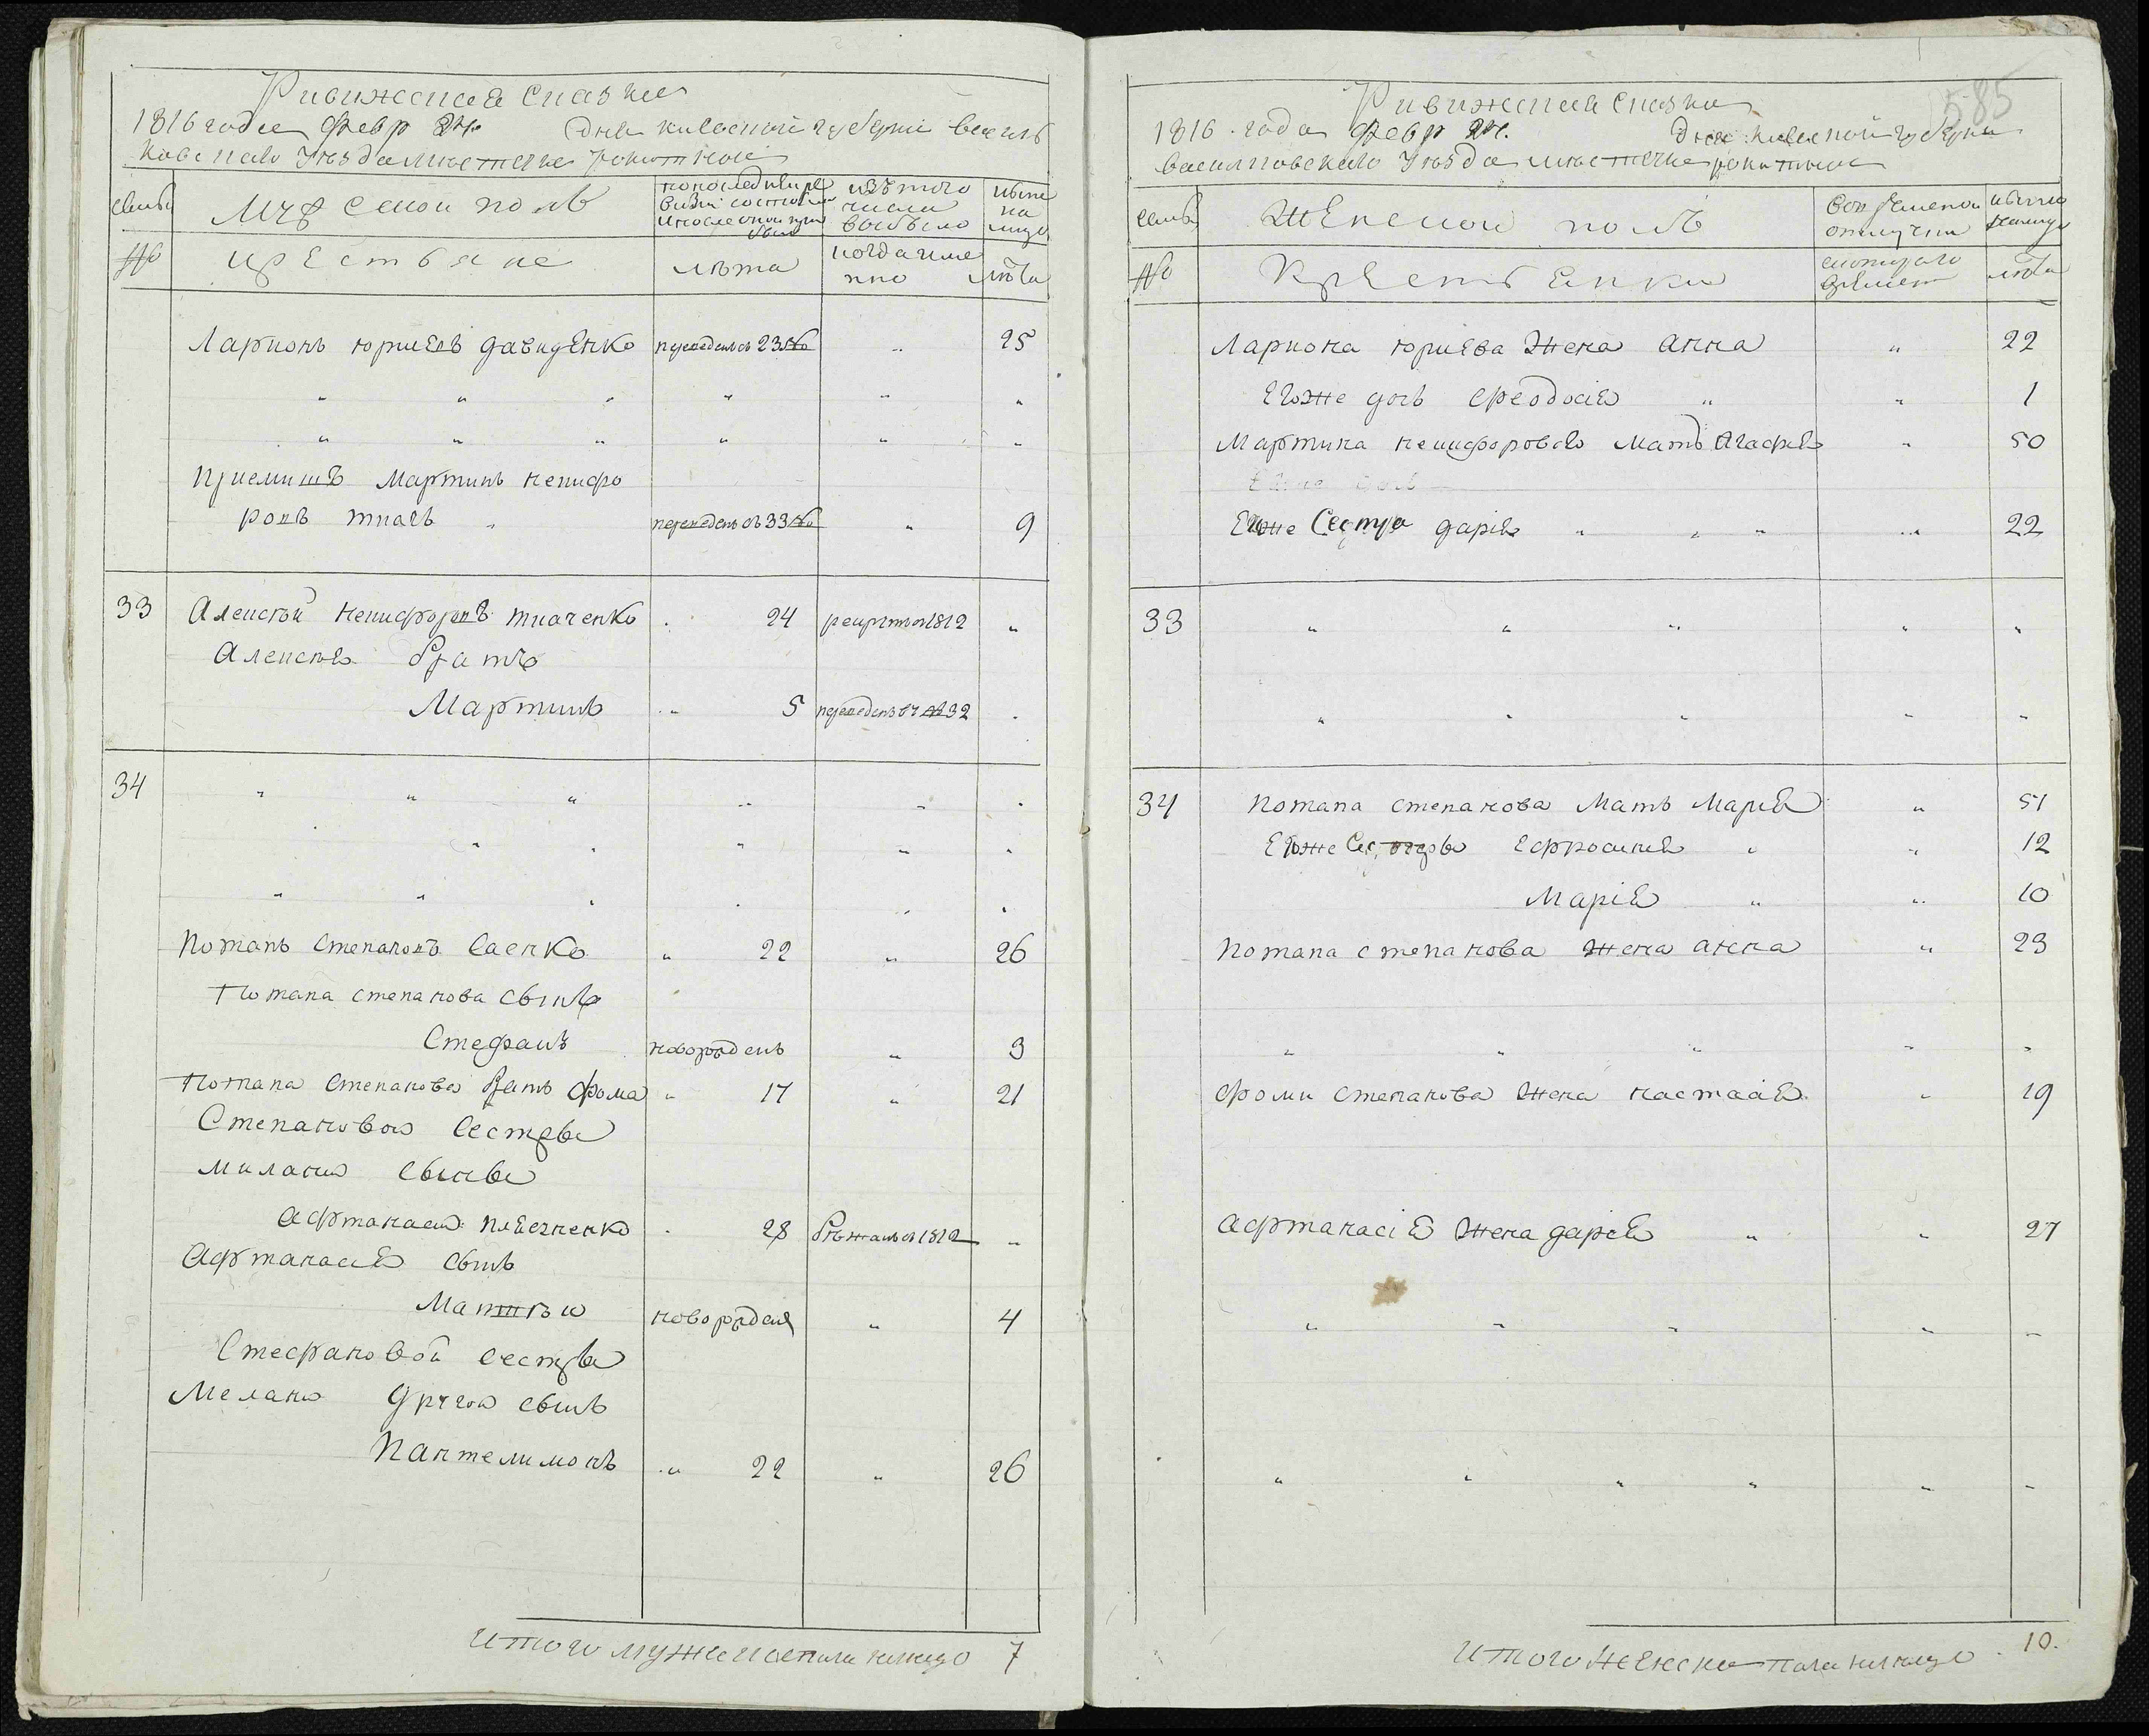 Ривижская сказка
1816 года февр 24 дня киевской губерни василь
ковского уезда местечка рокитной
семьи
Мужеской полъ
попоследней ре
визи состояло
и после оной при
было
изъ того
числа
выбыло
ныне
на
лицо
№
крестьяне
лѣта
когда име
нно
лѣта
Ларионъ юриевъ давиденко переведенъ съ 23 № " 25
" " " " " "
" " " " " "
Приемишъ Мартинъ никифо
ровъ ткачъ " переведенъ съ 33 № " 9
33 Алексѣй никифоровъ ткаченко 24 рекрутъ 1812 "
Алексѣя братъ
Мартинъ " 5 переведенъ в № 32
34 " " " " " "
" " " " "
" " " " " "
Потапъ степановъ саенко " 22 " 26
Потапа степанова сынъ
Стефанъ новорожденъ " 3
Потапа степанова братъ фома " 17 " 21
Степановой сестры
милании сынъ
афтанасий 28 бежалъ 1812 "
Афтанасия сынъ
Матвѣй новорожден " 4
Стефановой сестры
Мелании другой сынъ
Пантелимонъ " 22 " 26
итого мужеска пола налицо 7
585
Ривижская сказка
1816 года февр 24. дня киевской губерни
василковскаго уезда местечка рокитной
семьи
Женской полъ
во временной
отлучки
ныне
налицо
№
Крестьянки
с которого
времени
лѣта
Лариона юриева жена анна " 22
Егоже дочь феодосия " " 1
Мартина никифорового мать Агафия " 50
Егоже Сестра дария " " " " 22
33 " " " " "
" " " " "
34 Потапа степанова мать Мария " 51
Егоже сестры ефросиния " " 12
Мария " " 10
Потапа степанова жена анна " 23
" " " " "
Фоми степанова жена настасия " 19
афтанасия жена дария " " 27
" " " " "
" " " " " "
итого женска пола налицо 10.